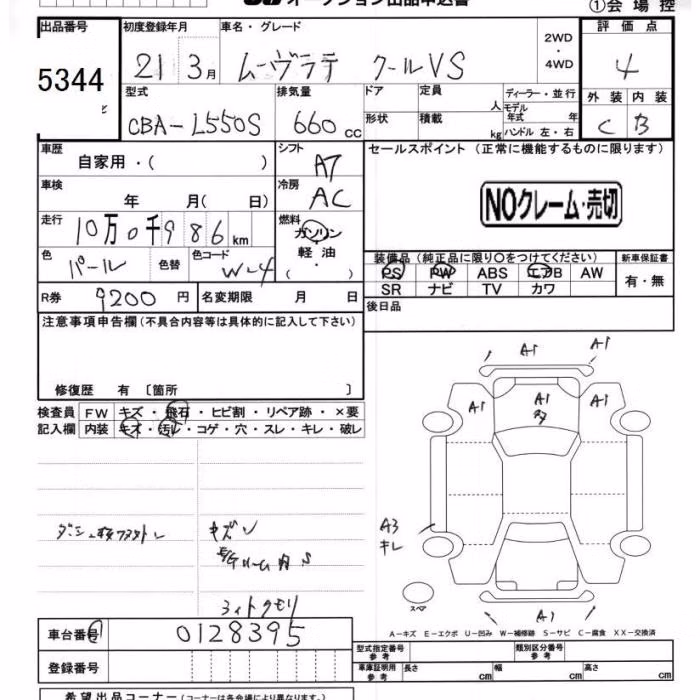 オークション出品申込書
①会場控
出品番号 初度登録年月 車名・グレード 2WD・4WD 評価点
5344 21 3月 ムーヴラテ クールVS 4
型式 排気量 ドア 定員 人 ディーラー・並行 外装 内装
CBA-L550S 660cc 形状 積載 kg モデル年式 年 ハンドル 左・右 C B
車歴 自家用・( ) シフト AT セールスポイント (正常に機能するものに限ります)
車検 年 月( 日) 冷房 AC
NOクレーム・売切
走行 10万0千986km 燃料 ガソリン 軽油 ・ ( )
色 パール 色替 色コード W-4
装備品(純正品に限り○をつけてください) 新車保証書
PS PW ABS エアB AW 有・無
SR ナビ TV カワ
R券 9200円 名変期限 月 日 後日品
注意事項申告欄(不具合内容等は具体的に記入して下さい)
修復歴 有 〔箇所 〕
検査員 FW キズ・飛石・ヒビ割・リペア跡・×要
記入欄 内装 キズ・汚レ・コゲ・穴・スレ・キレ・破レ
A1 A1
A1 A1 A1
A3
キレ
キズ
ライトクモリ
スペア
A1
A-キズ E-エクボ U-凹み W-補修跡 S-サビ C-腐食 XX-交換済
車台番号 0128395
型式指定番号 参考 類別区分番号 参考
登録番号 車庫証明用 参考 長さ cm 幅 cm 高さ cm
希望出品コーナー(コーナーは各会場により異なります)